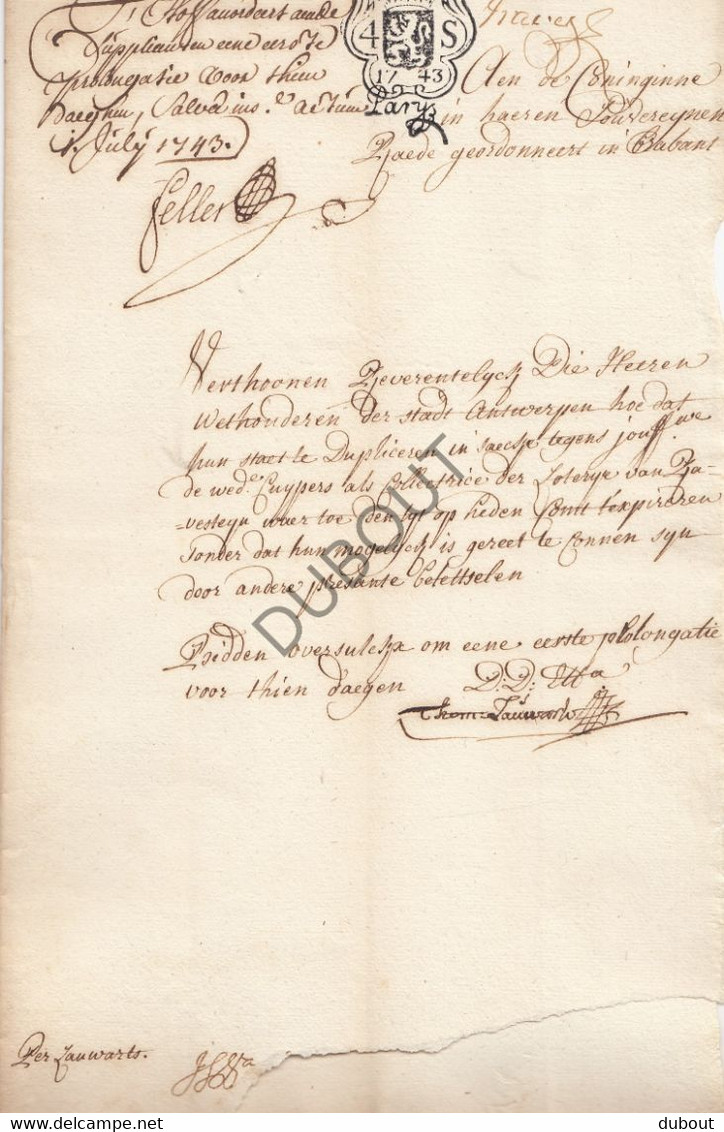 T'Hoff accordeert aende
Supplianten eene eerste
prolongatie voor thien
daeghen, Salvo ins. actum
1. July 1743.
feller
4 S
17 43
Parys
Aen de Coninginne
in haeren Souvereynen
Raede geordonneert in Brabant
Verthoonen Reverentelyck Die Heeren
Wethouderen der stadt Antwerpen hoe dat
hun staet te Dupliceren in saecke tegens jouff.we
de wed.e Cuypers als Collectrice der Loterye van Ra-
-vesteyn waer toe den tyt op heden Comt t'expireren
sonder dat hun mogelyck is gereet te Connen syn
door andere pressante beletselen
Bidden oversulckx om eene eerste prolongatie
voor thien daegen D: D: Itta
Per Lauwarts.
DUBOUT
dubout